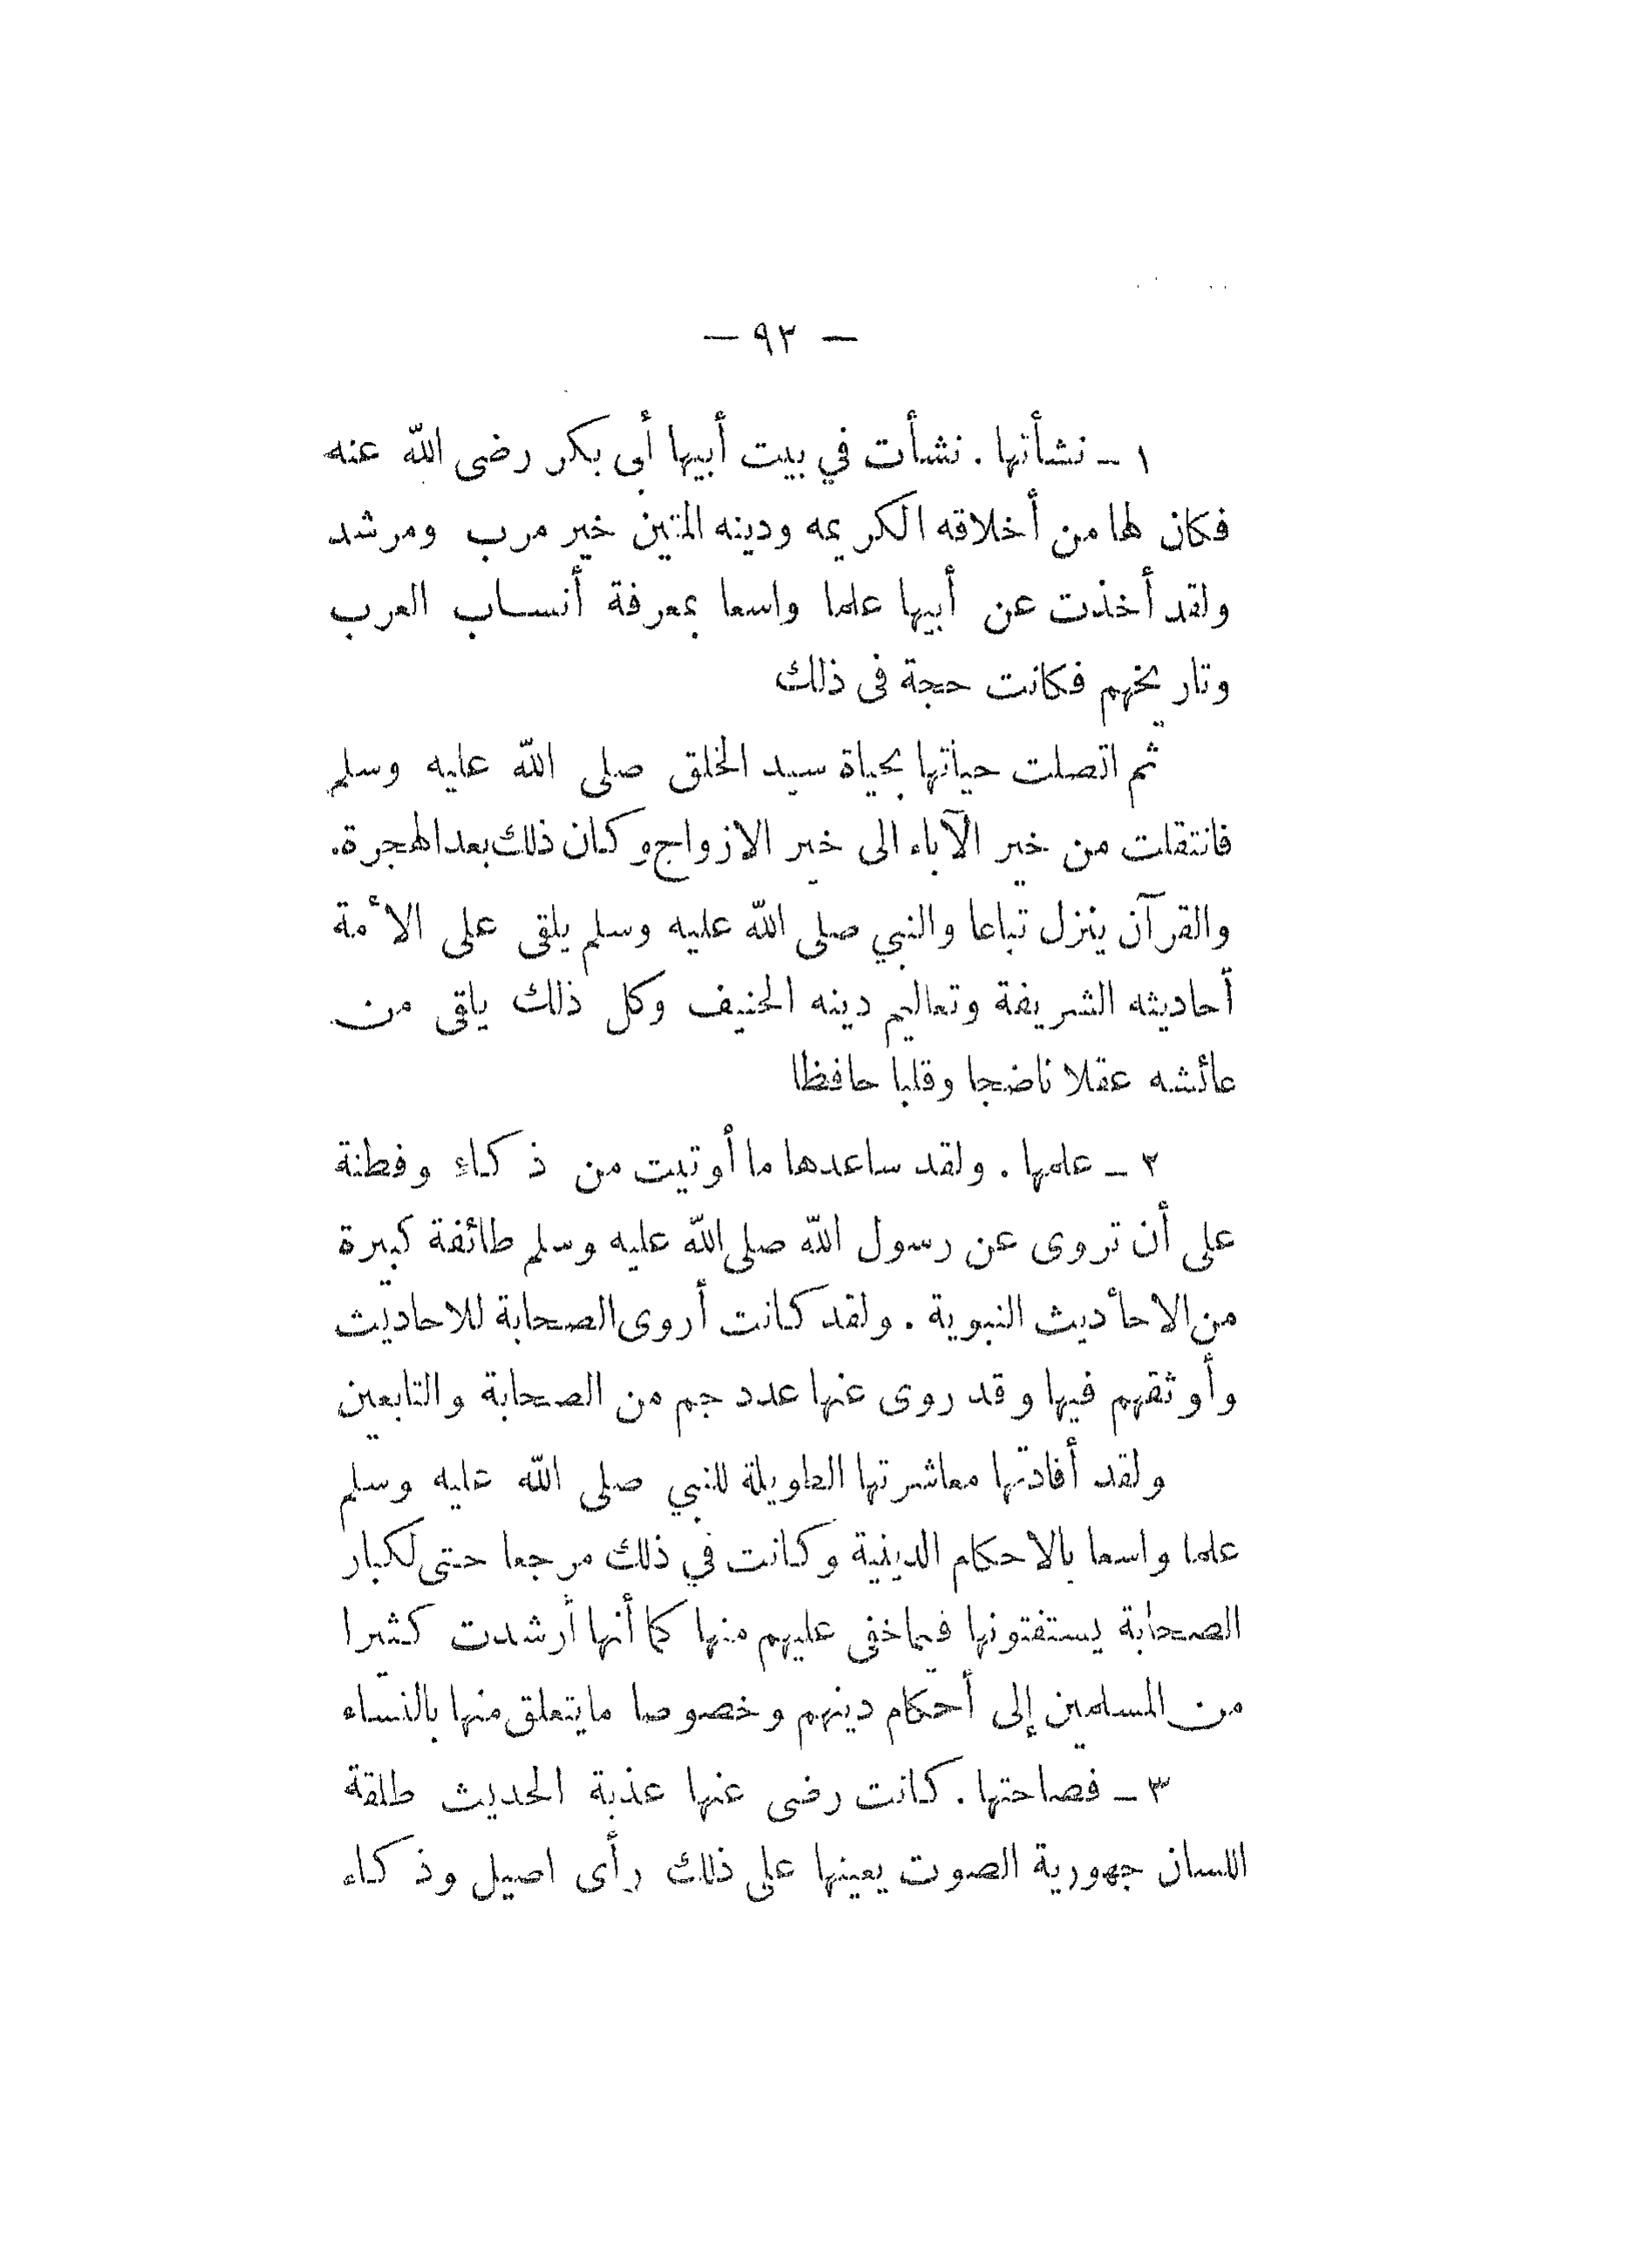 — ٩٣ —
١ – نشأتها . نشأت في بيت أبيها أبى بكر رضى الله عنه
فكان لها من أخلاقه الكريمه ودينه المتين خير مرب ومرشد
ولقد أخذت عن أبيها علما واسعا بمعرفة أنساب العرب
وتاريخهم فكانت حجة فى ذلك
ثم اتصلت حياتها بحياة سيد الخلق صلى الله عليه وسلم
فانتقلت من خير الآباء الى خير الازواج وكان ذلك بعد الهجرة.
والقرآن ينزل تباعا والنبي صلى الله عليه وسلم يلقى على الأمة
أحاديثه الشريفة وتعاليم دينه الحنيف وكل ذلك يلقى من
عائشه عقلا ناضجا وقلبا حافظا
٢ – علمها . ولقد ساعدها ما أوتيت من ذكاء وفطنة
على أن تروى عن رسول الله صلى الله عليه وسلم طائفة كبيرة
من الاحأديث النبوية . ولقد كانت أروى الصحابة للاحاديث
وأوثقهم فيها وقد روى عنها عدد جم من الصحابة والتابعين
ولقد أفادتها معاشرتها الطويلة للنبي صلى الله عليه وسلم
علما واسعا بالاحكام الدينية وكانت في ذلك مرجعا حتى لكبار
الصحابة يستفتونها فيما خفى عليهم منها كما أنها أرشدت كثيرا
من المسلمين إلى أحكام دينهم وخصوصا ما يتعلق منها بالنساء
٣ – فصاحتها . كانت رضى عنها عذبة الحديث طلقة
اللسان جهورية الصوت يعينها على ذلك رأى اصيل وذكاء